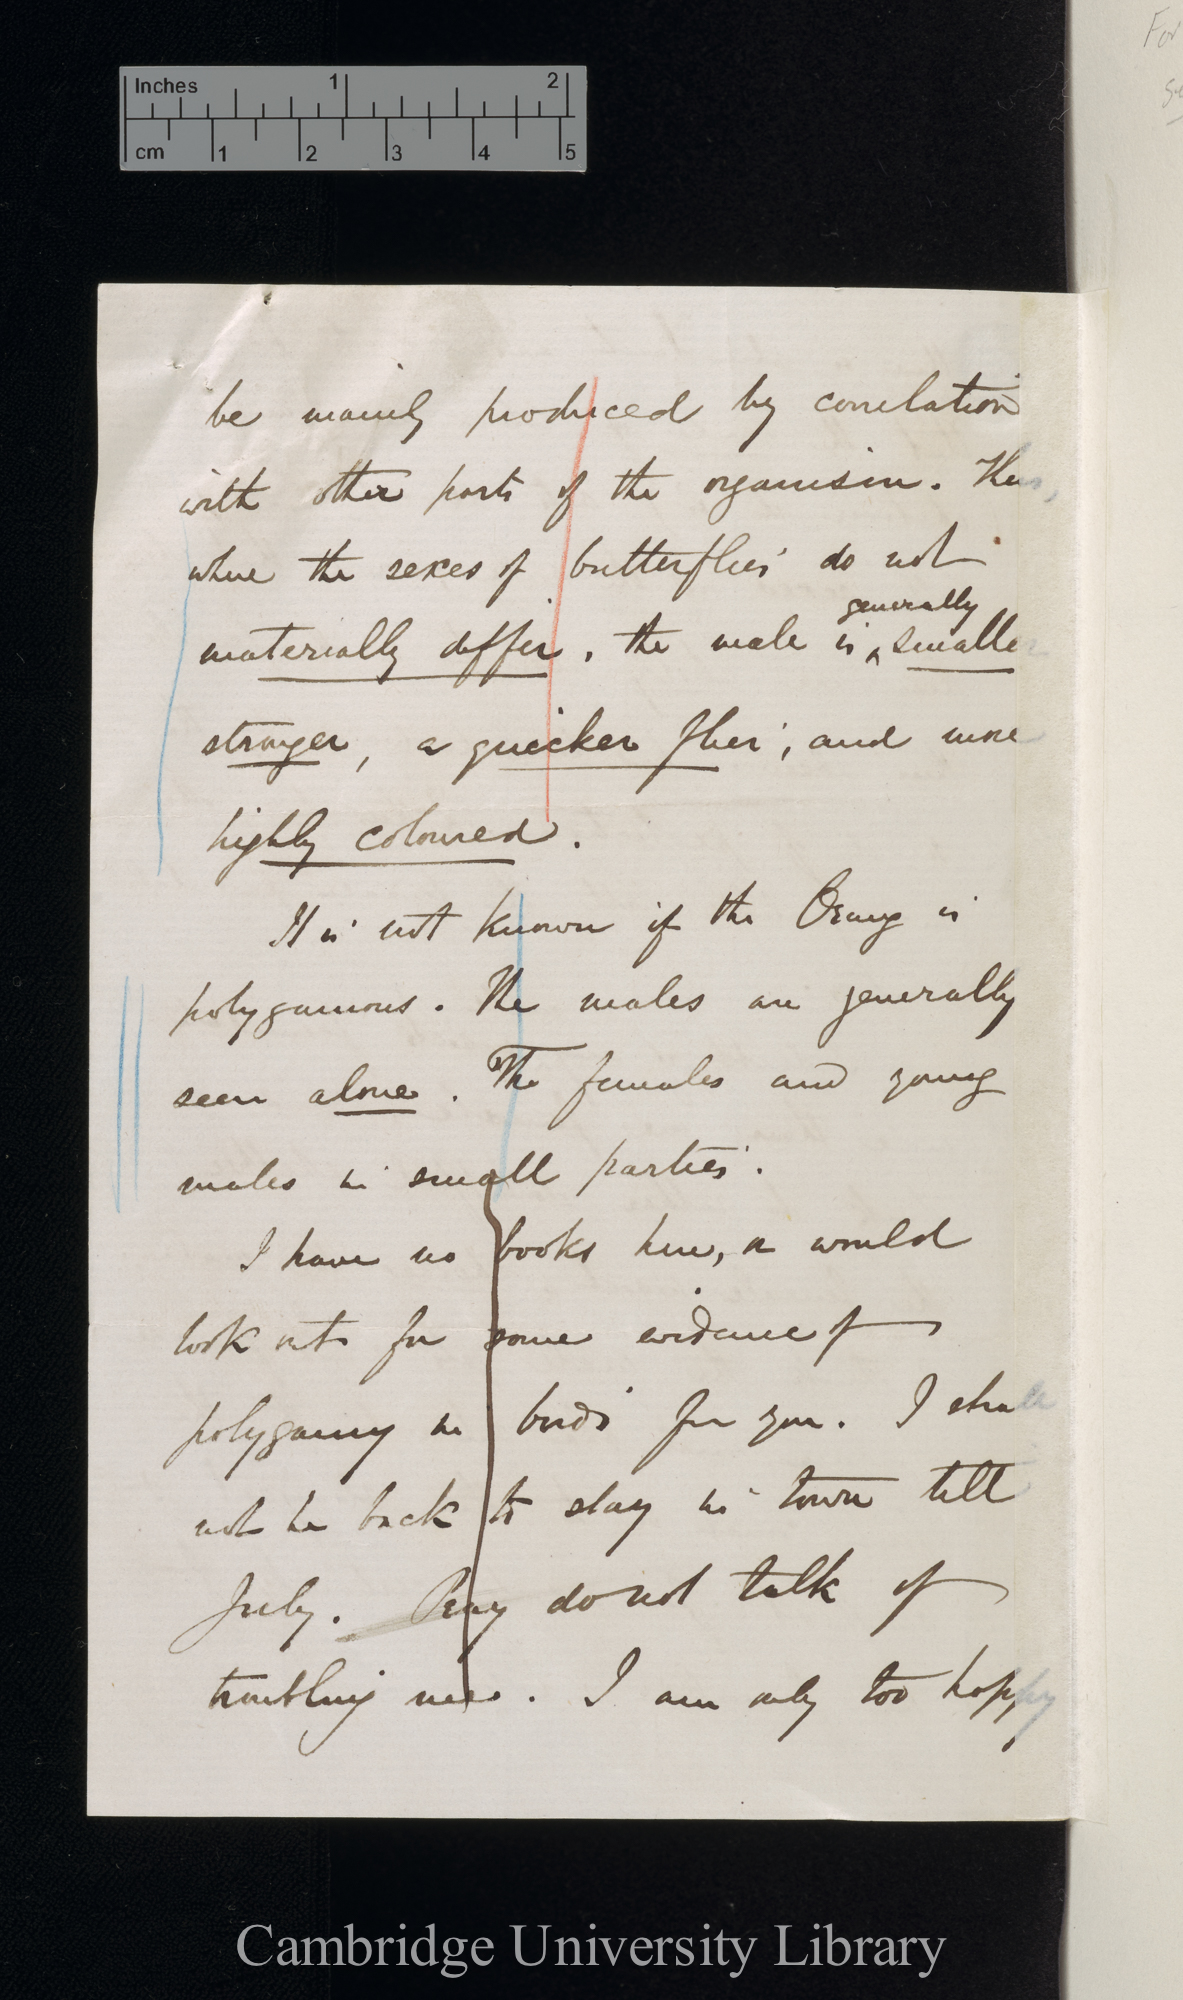 For
Inches 1 2
cm 1 2 3 4 5
be mainly produced by correlation
with other parts of the organism. Thus,
where the sexes of butterflies do not
generally
materially differ, the male is ^ smaller
stronger, a quicker flier, and more
highly coloured.
It is not known if the Orang is
polygamous. The males are generally
seen alone. The females and young
males in small parties.
I have no books here, or would
look out for some evidence of
polygamy in birds for you. I shall
not be back to stay in town till
July. Pray do not talk of
troubling me. I am only too happy
Cambridge University Library